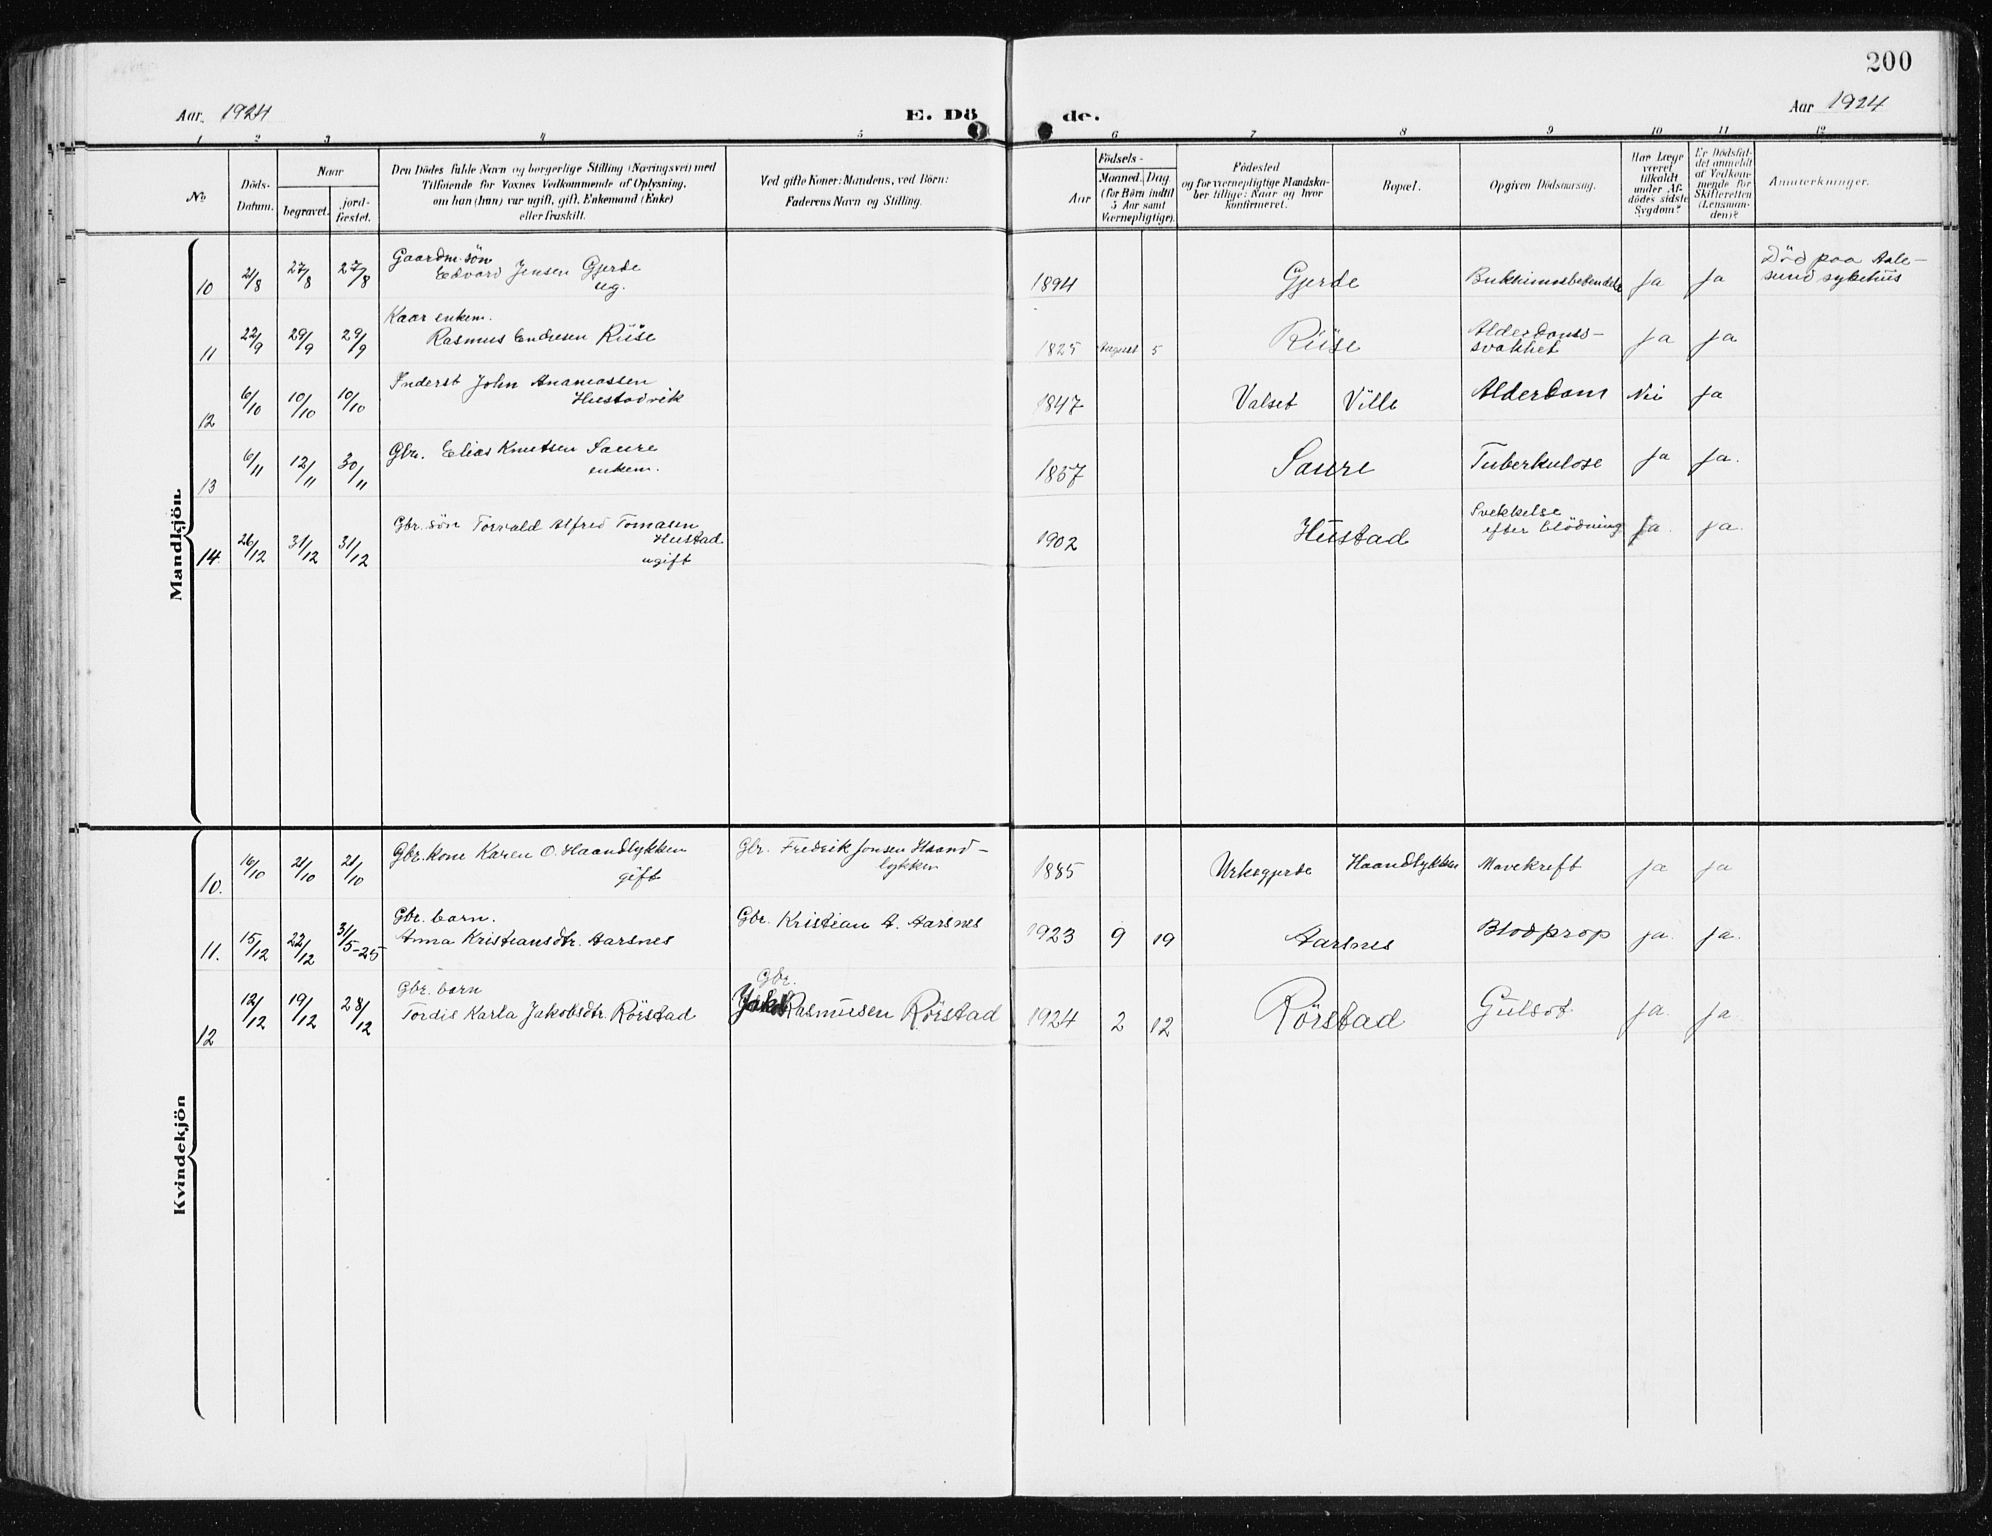 200
Aar. 1924
E. Dö
de.
Aar 1924
1 2 3 4 5 6 7 8 9 10 11 12
No.
Döds-
Datum.
Naar
begravet.
jord-
fæstet.
Den Dödes fulde Navn og borgerlige Stilling (Næringsvei) med
Tilföiende for Voxnes Vedkommende af Oplysning,
om han (hun) var ugift, gift, Enkemand (Enke)
eller fraskilt.
Ved gifte Koner: Mandens, ved Börn:
Faderens Navn og Stilling.
Födsels-
Aar
Maaned. Dag
(for Börn indtil
5 Aar samt
Værnepligtige).
Födested
og for værnepligtige Mandska-
ber tillige: Naar og hvor
konfirmeret.
Bopæl.
Opgiven Dödsaarsag.
Har Læge
været
tilkaldt
under Af-
dödes sidste
Sygdom?
Er Dödsfal-
det anmeldt
af Vedkom-
mende for
Skifteretten
(Lensman-
den)?
Anmærkninger.
Mandkjön.
10 21/8 27/8 27/8 Gaardm. sön
Edvard Jensen Gjerde
ug.
1894 Gjerde Bukhinnebetendelse Ja Ja Död paa Aale-
sund sykehus
11 22/9 29/9 29/9 Kaar enkem.
Rasmus Endresen Riise
1825 August 5 Riise Alderdoms-
svakhet Ja Ja
12 6/10 10/10 10/10 Inderst John Ananiassen
Hustadvik
1847 Valset Ville Alderdom Nei Ja
13 6/11 12/11 30/11 Gbr. Elias Knutsen Saure
enkem.
1857 Saure Tuberkulose Ja Ja.
14. 26/12 31/12 31/12 Gbr. sön Torvald Alfred Tomasen
Hustad
ugift
1902 Hustad Svekkelse
efter blödning Ja. Ja.
Kvindekjön
10. 16/10 21/10 21/10 Gbr. kone Karen O. Haandlykken
gift
Gbr. Fredrik Jonsen Haand-
lykken
1885 Urkegjerde Haandlykken Mavekreft Ja Ja
11. 15/12 22/12 31/5-25 Gbr. barn.
Anna Kristiansdtr. Aarsnes
Gbr. Kristian A. Aarsnes
1923 9 19 Aarsnes Blodprop Ja. Ja.
12 12/12 19/12 28/12 Gbr. barn
Tordis Karla Jakobsdtr. Rörstad
Gbr.
Jakob Rasmusen Rörstad
1924 2 12 Rörstad Gulsot Ja. Ja.